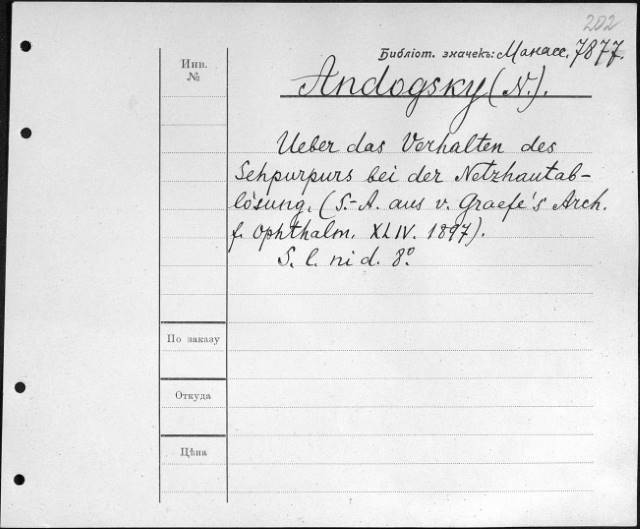 202
Библіот. значекъ: Манасс. 7877.
Инв.
№
Andogsky (N.).
Ueber das Verhalten des
Sehpurpurs bei der Netzhautab-
lösung. (S.-A. aus v. Graefe's Arch.
f. Ophthalm. XLIV. 1897).
S. l. ni d. 8º.
По заказу
Откуда
Цѣна